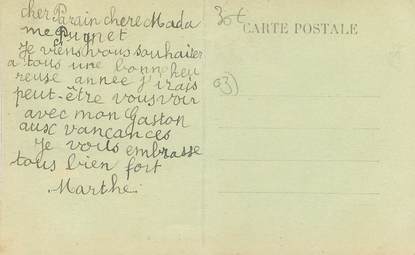 cher Parain chere Mada
me Puynet
Je viens vous souhaiter
a tous une bonne heu
reuse année j'irais
peut-être vous voir
avec mon Gaston
aux vancances
Je vous embrasse
tous bien fort
Marthe
30t
CARTE POSTALE
03)